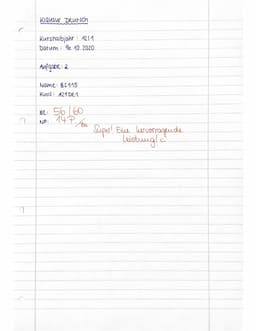 Klausur Deutsch
Kurshalbjahr: 12/1
Datum: 9. 12. 2020
Aufgabe: 2
Name:
Kurs: 12
BE: 56/60
NP: 14P
Super! Eine hervorragende
Leistung!